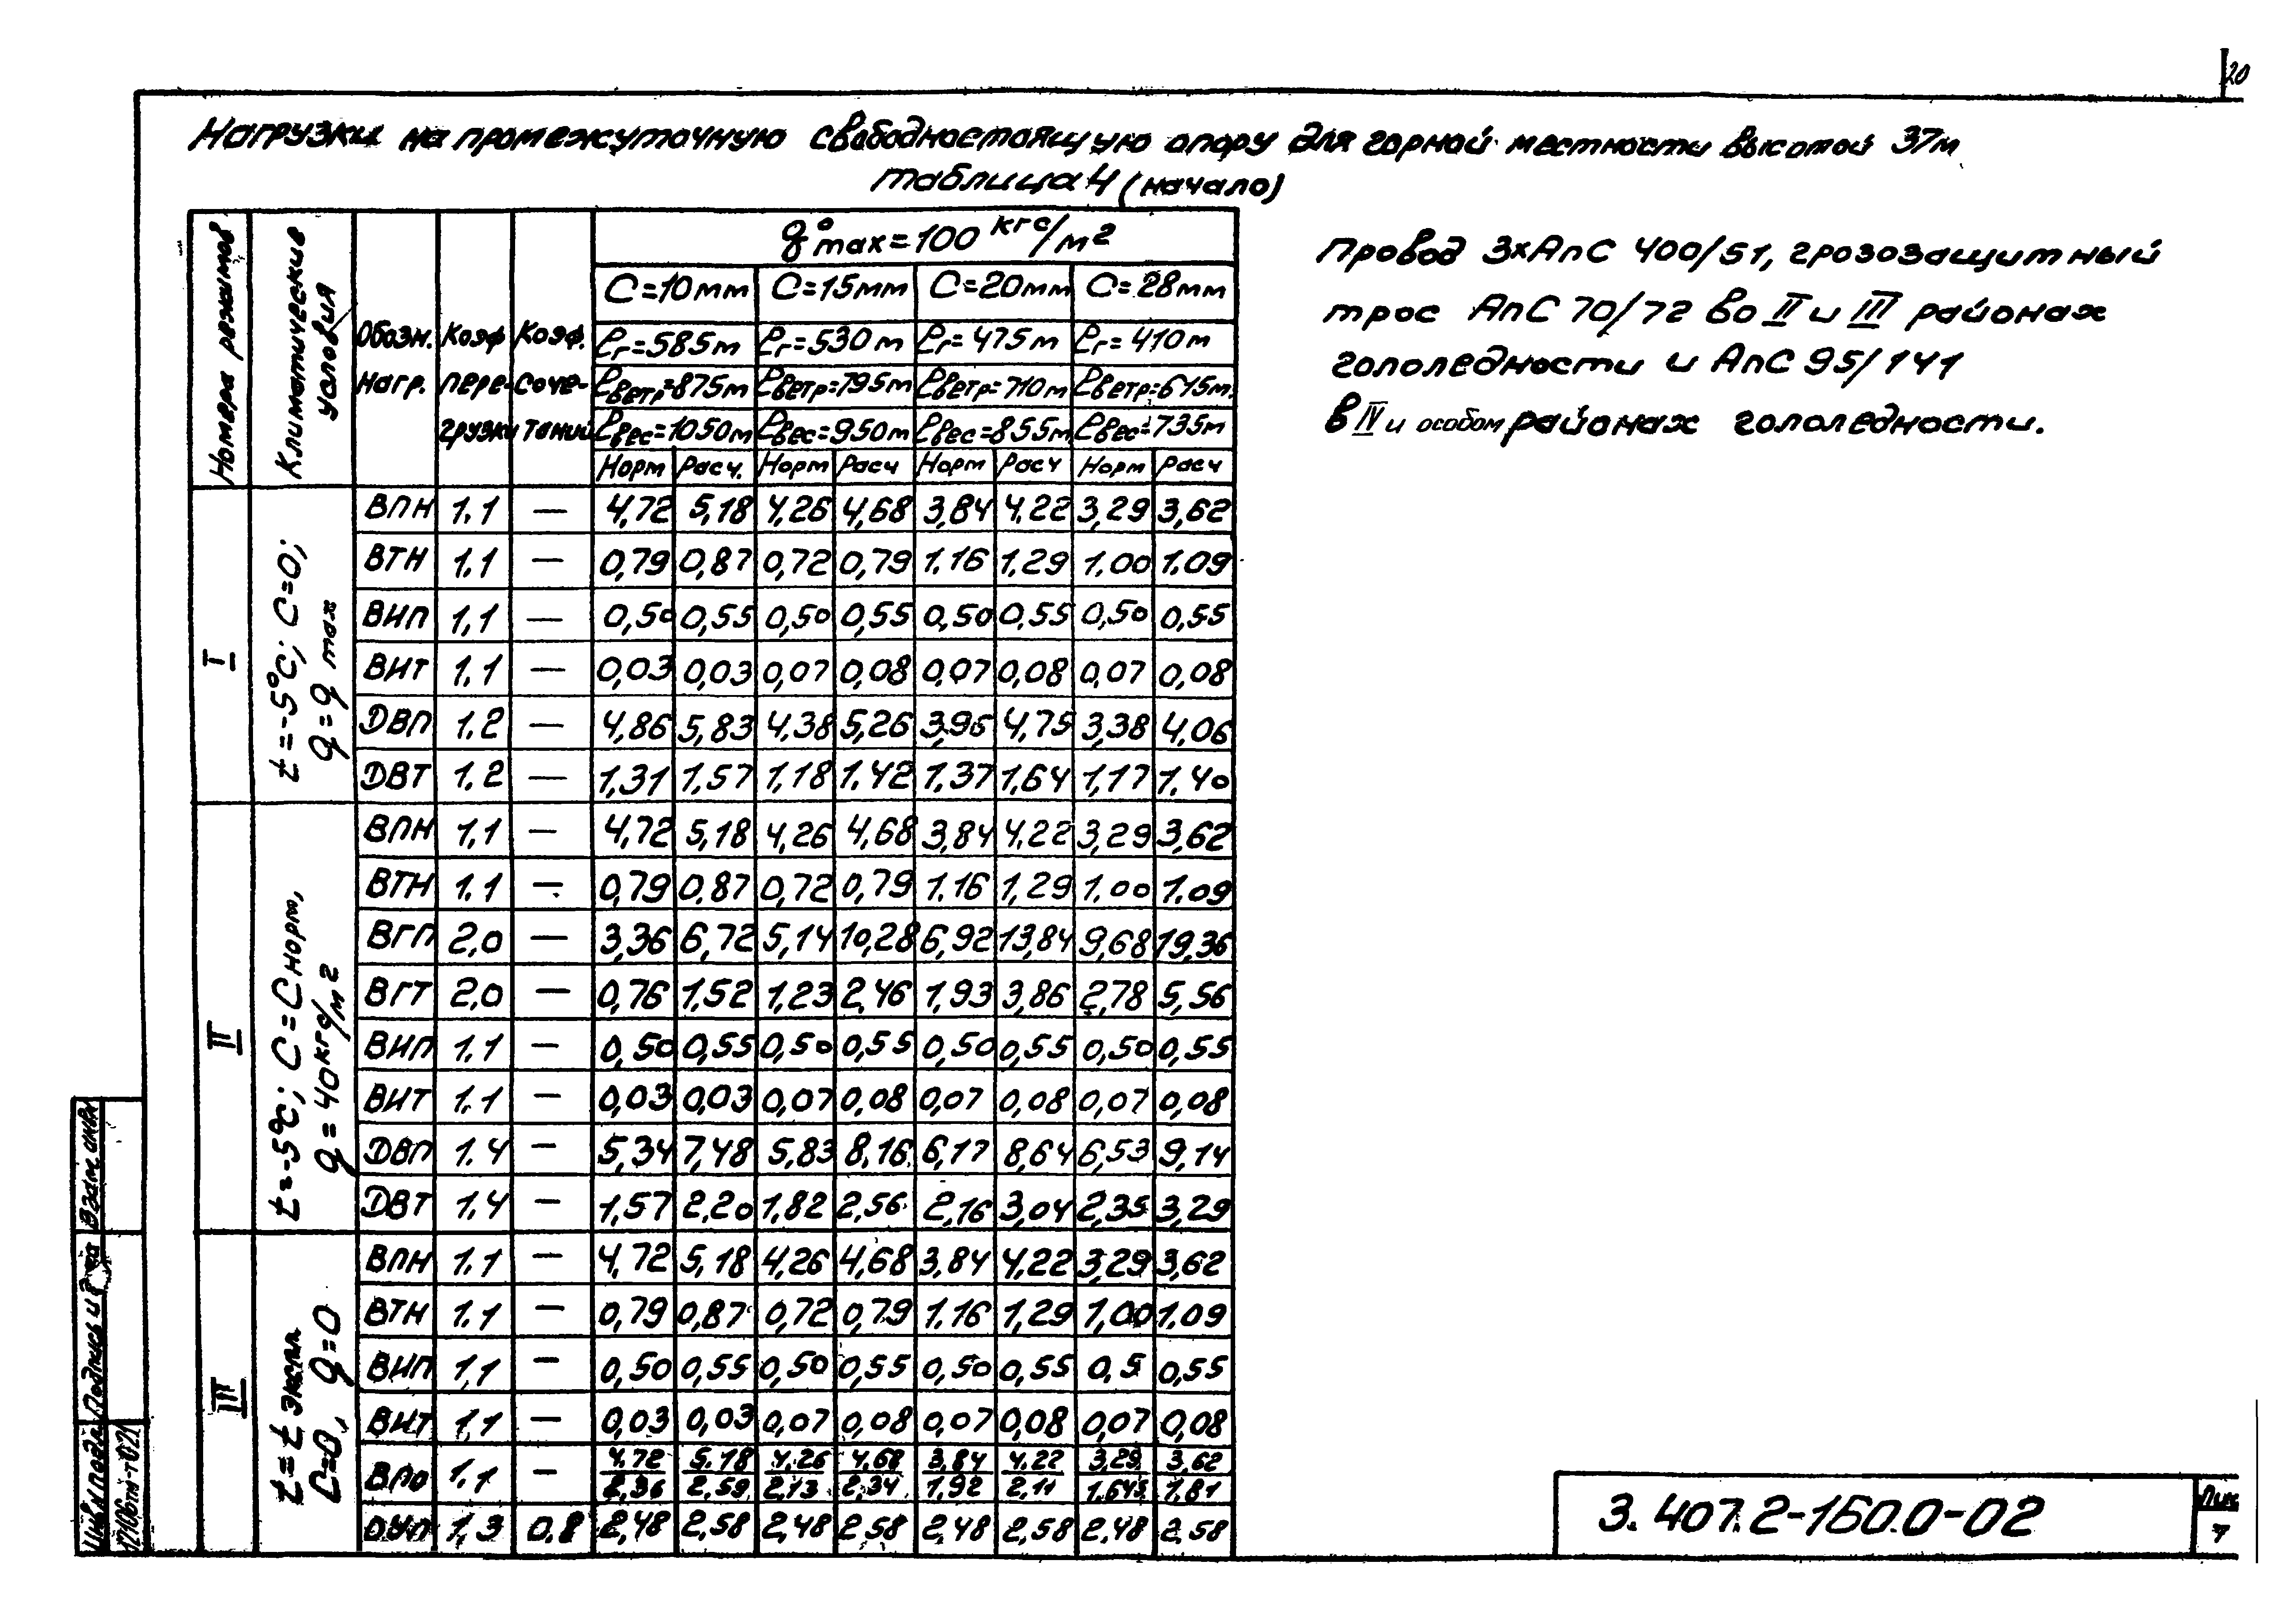 20
Нагрузки на промежуточную свободностоящую опору для горной местности высотой 37м
таблица 4 (начало)
Номера режимов
Климатические условия
Обозн. нагр.
Коэф. перегрузки
Коэф. сочетаний
q°max=100 кгс/м²
С=10мм С=15мм С=20мм С=28мм
ℓг=585м ℓг=530м ℓг=475м ℓг=410м
ℓветр=875м ℓветр=795м ℓветр=710м ℓветр=615м
ℓвес=1050м ℓвес=950м ℓвес=855м ℓвес=735м
Норм Расч. Норм Расч Норм Расч Норм Расч
I
t=-5°С; С=0;
q=q max
ВПН 1.1 — 4,72 5,18 4,26 4,68 3,84 4,22 3,29 3,62
ВТН 1.1 — 0,79 0,87 0,72 0,79 1.16 1,29 1.00 1.09
ВИП 1,1 — 0,50 0,55 0,50 0,55 0,50 0,55 0,50 0,55
ВИТ 1.1 — 0,03 0,03 0,07 0,08 0,07 0,08 0,07 0,08
ДВП 1.2 — 4,86 5,83 4,38 5,26 3,96 4,75 3,38 4,06
ДВТ 1.2 — 1,31 1,57 1,18 1.42 1,37 1,64 1,17 1.40
II
t=-5°С; С=Снорм,
q=40кгс/м²
ВПН 1,1 — 4,72 5,18 4,26 4,68 3,84 4,22 3,29 3,62
ВТН 1.1 — 0,79 0,87 0,72 0,79 1.16 1,29 1.00 1.09
ВГП 2,0 — 3,36 6,72 5,14 10,28 6,92 13,84 9,68 19,36
ВГТ 2,0 — 0,76 1,52 1,23 2,46 1,93 3,86 2,78 5,56
ВИП 1.1 — 0,50 0,55 0,50 0,55 0,50 0,55 0,50 0,55
ВИТ 1.1 — 0,03 0,03 0,07 0,08 0,07 0,08 0,07 0,08
ДВП 1.4 — 5,34 7,48 5,83 8,16 6,17 8,64 6,53 9,14
ДВТ 1.4 — 1,57 2,20 1,82 2,56 2,16 3,04 2,35 3,29
III
t=t экспл
С=0, q=0
ВПН 1.1 — 4,72 5,18 4,26 4,68 3,84 4,22 3,29 3,62
ВТН 1.1 — 0,79 0,87 0,72 0,79 1.16 1,29 1,00 1.09
ВИП 1,1 — 0,50 0,55 0,50 0,55 0,50 0,55 0,5 0,55
ВИТ 1,1 — 0,03 0,03 0,07 0,08 0,07 0,08 0,07 0,08
ВПО 1,1 — 4.72/2,36 5.18/2,59 4,26/2,13 4,68/2,34 3,84/1,92 4,22/2,11 3,29/1.645 3,62/1,81
ОУП 1,3 0,8 2,48 2,58 2,48 2,58 2,48 2,58 2,48 2.58
Провод 3хАпС 400/51, грозозащитный
трос АпС 70/72 во II и III районах
гололедности и АпС 95/141
в IV и особом районах гололедности.
Взам. инв№
Подпись и дата
Инв.№ подл.
12106тм-т02
3.407.2-160.0-02
Лист
7